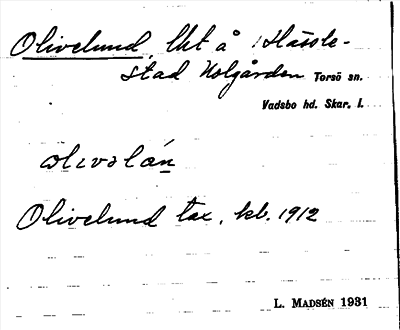 Olivelund, lht å Hassle-
stad Holgården Torsö sn.
Vadsbo hd. Skar. l.
olivəlán
Olivelund tax, kb. 1912
L. MADSÉN 1931